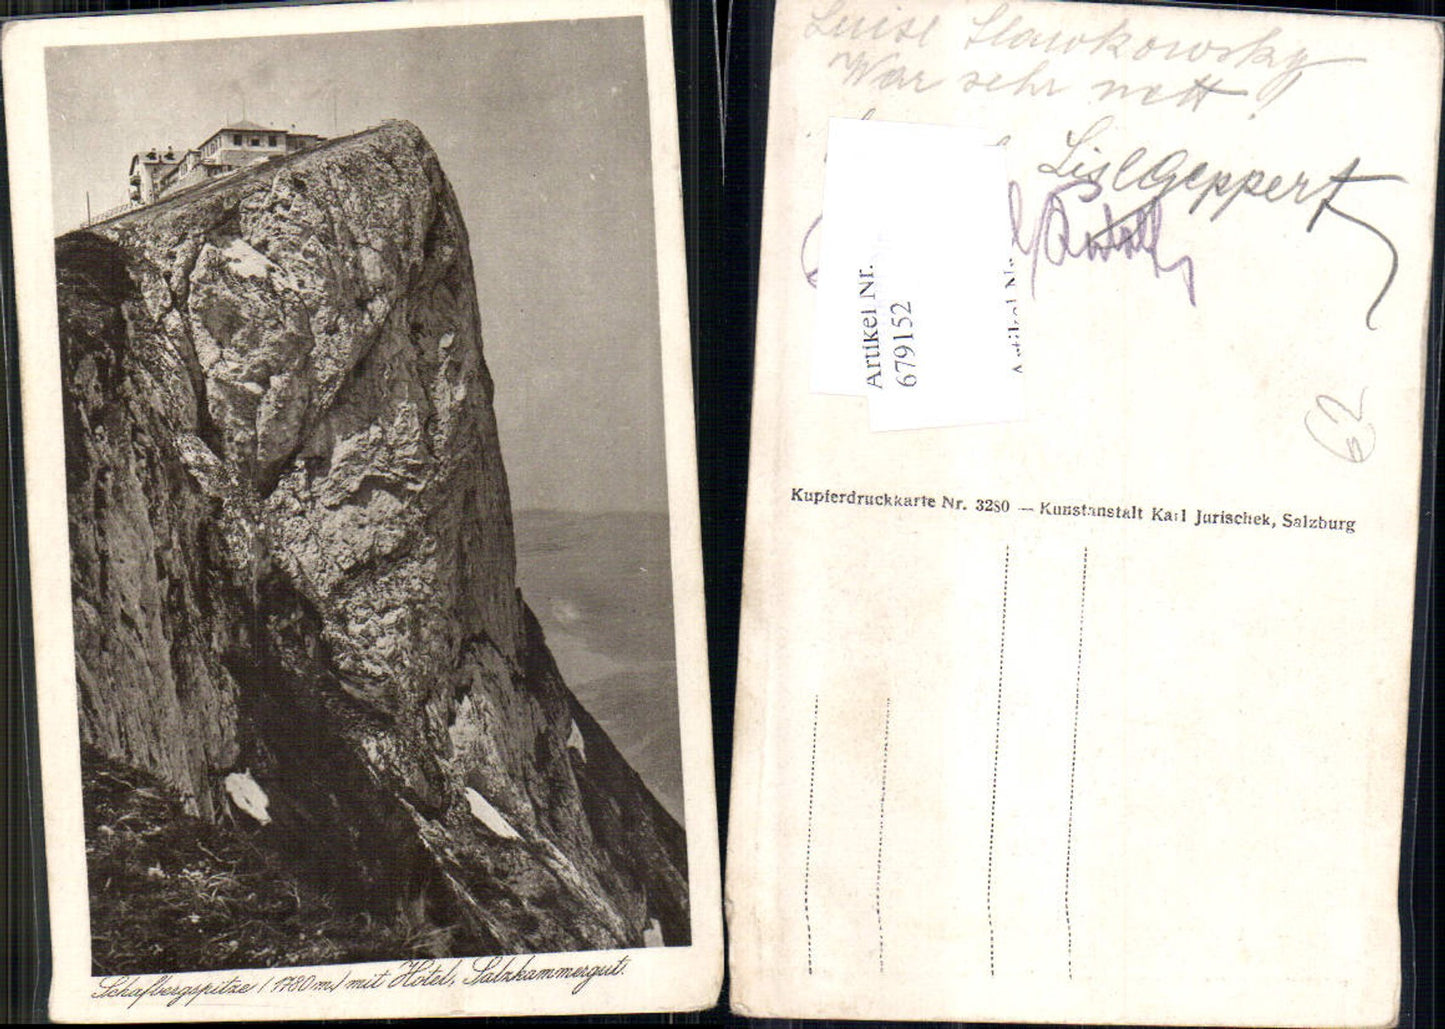 Schafbergspitze (1780 m) mit Hotel, Salzkammergut.
Luise Slawkowsky
War sehr nett!
Lisl Geppert
Artikel Nr.
679152
Artikel Nr.
62
Kupferdruckkarte Nr. 3280 — Kunstanstalt Karl Jurischek, Salzburg